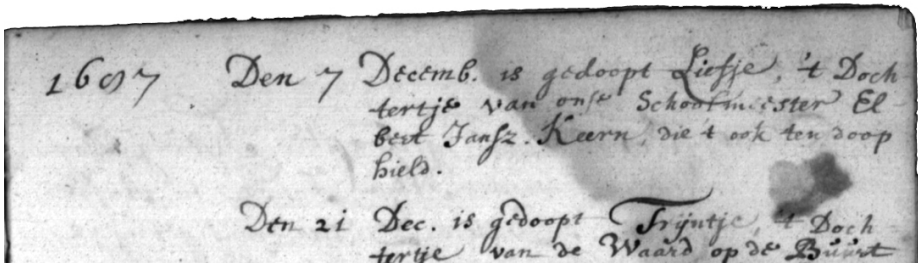 1697 Den 7 Decemb. is gedoopt Liefje, 't Doch
tertje van onse Schoolmeester El-
bert Jansz. Keern, die 't ook ten doop
hield.
Den 21 Dec. is gedoopt Trijntje, 't Doch
tertje van de Waard op de Buurt